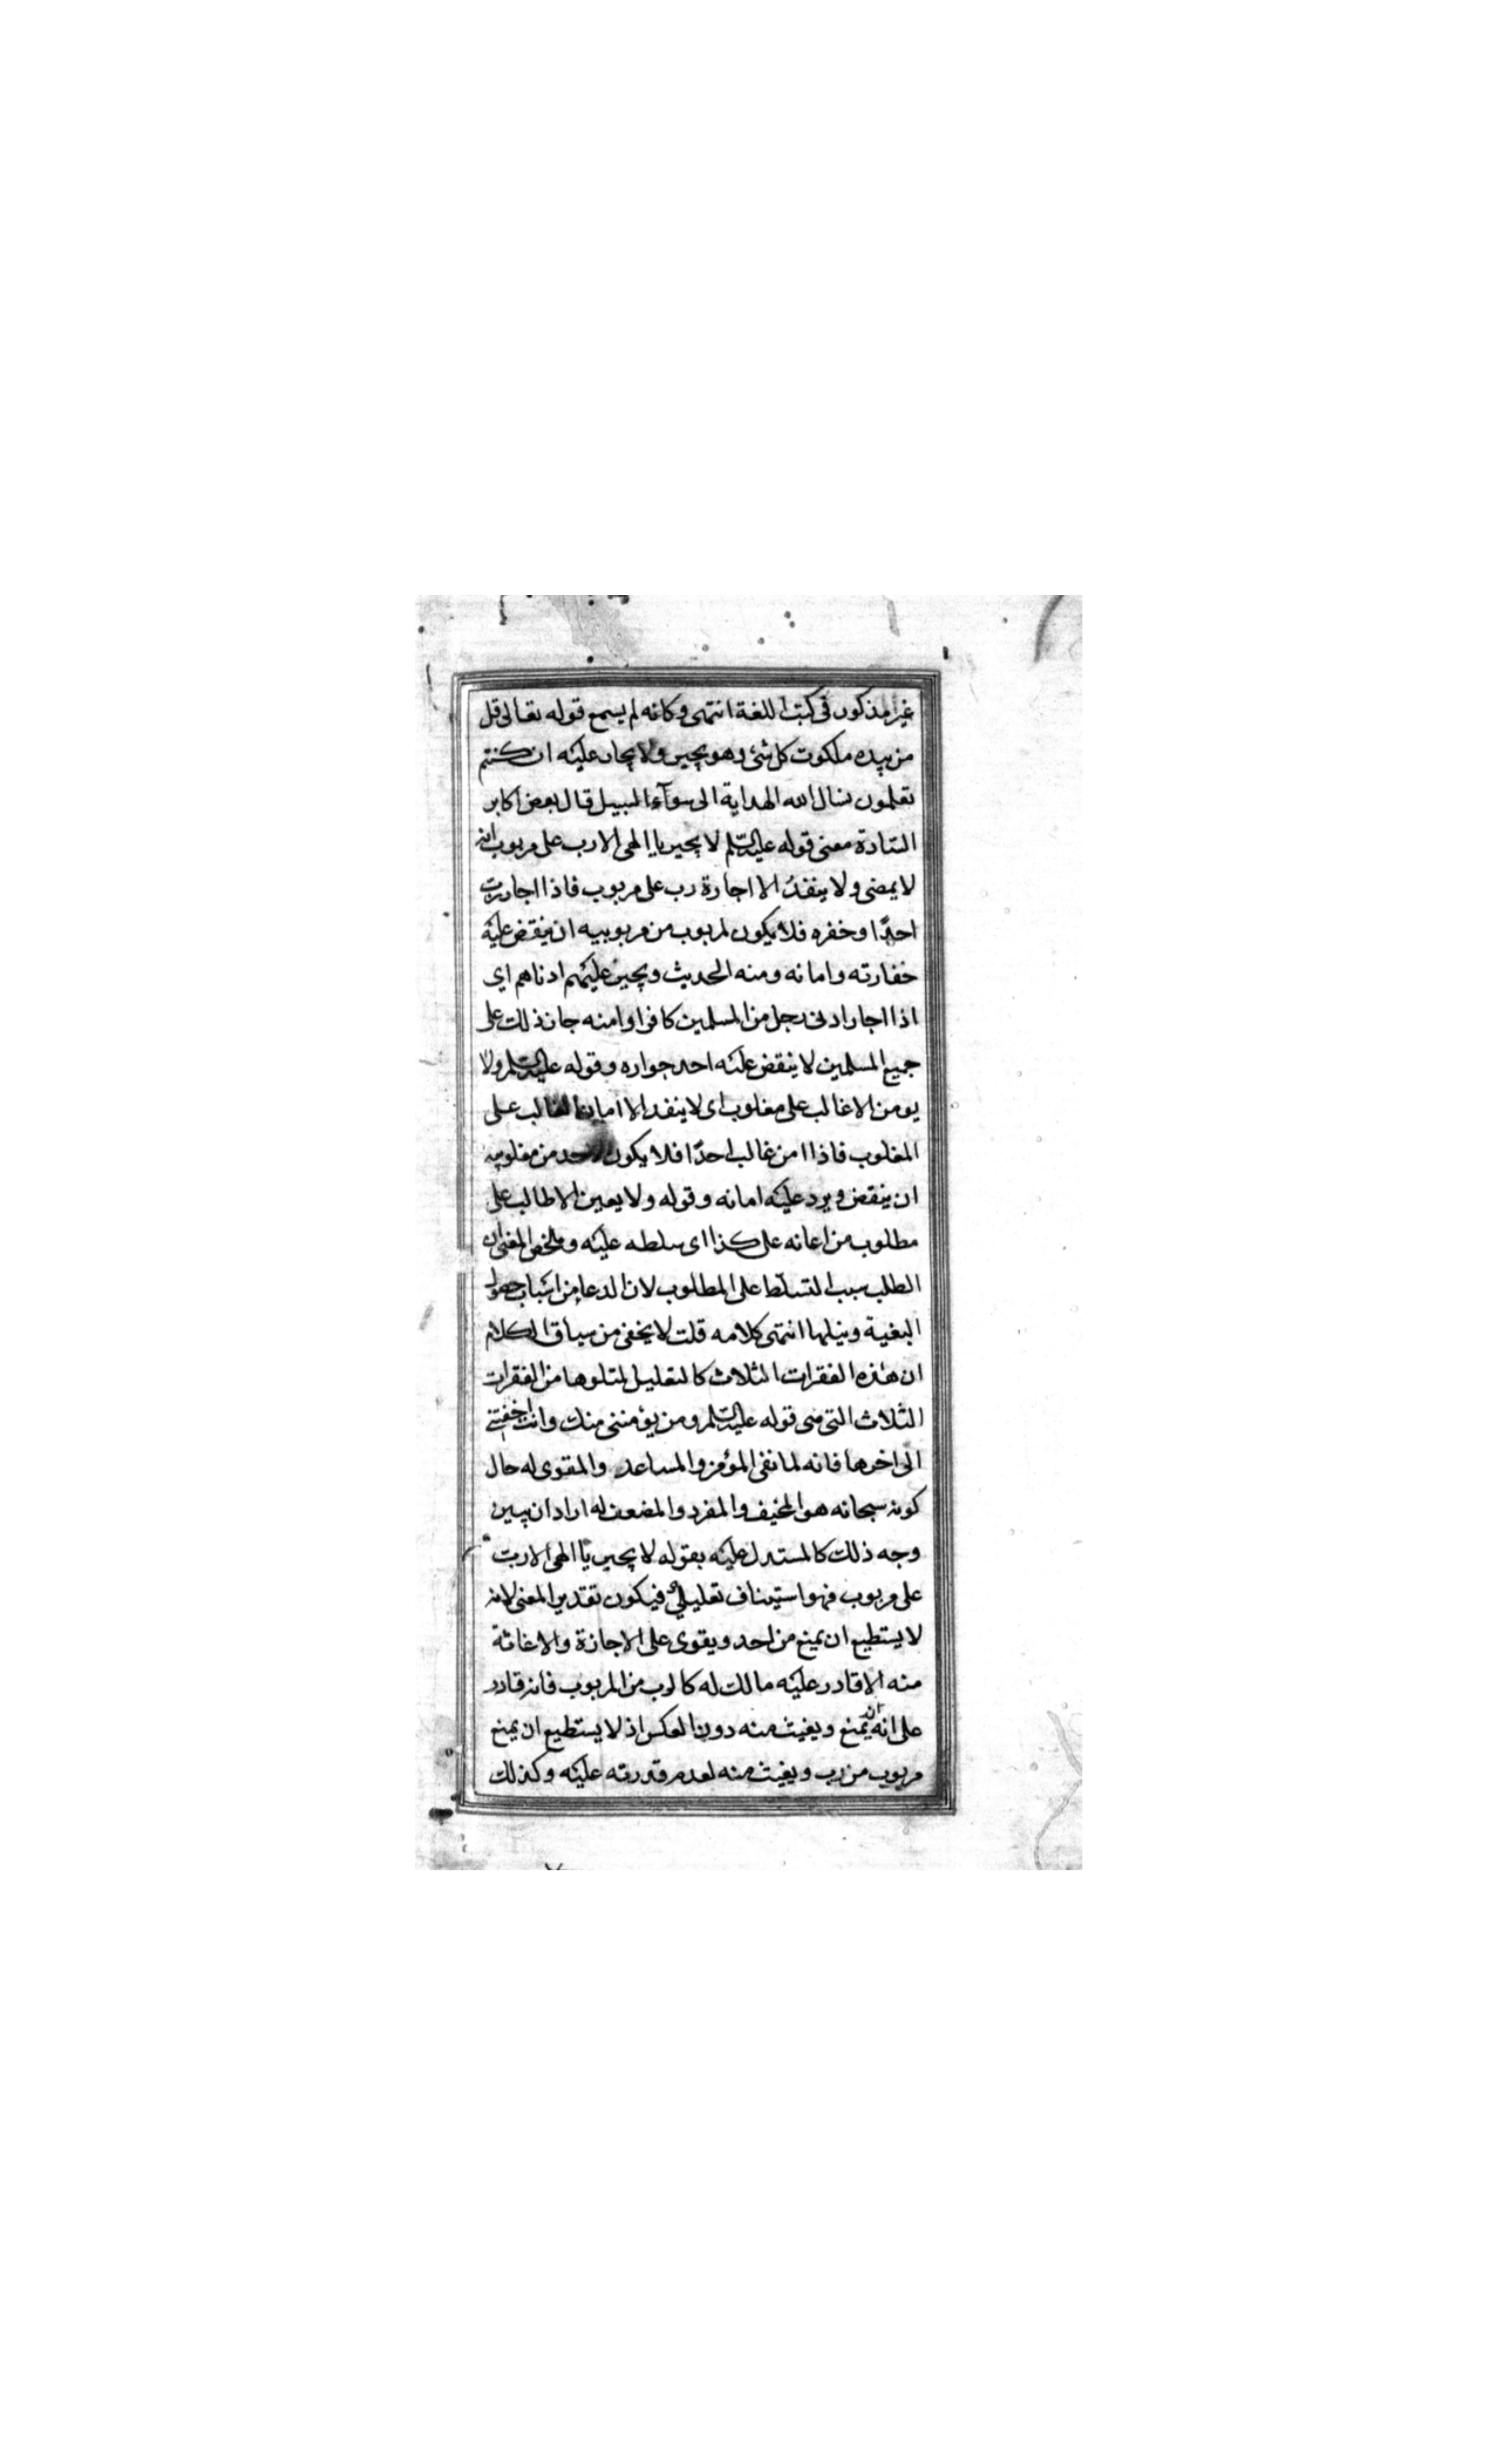 غير مذكور فى كتب اللغة انتهى وكانه لم يسمع قوله تعالى قل
من بيده ملكوت كل شئ وهو يجير ولا يجار عليه ان كنتم
تعلمون نسال الله الهداية الى سوآء السبيل قال بعض اكابر
السادة معنى قوله عليه السلم لا يجير يا الهى الا رب على مربوب انه
لا يمضى ولا ينفذ الا اجارة رب على مربوب فاذا اجار رب
احدًا وخفره فلا يكون لمربوب من مربوبيه ان ينقض عليه
خفارته وامانه ومنه الحديث ويجير عليهم ادناهم اي
اذا اجار ادنى رجل من المسلمين كافرا وامنه جاز ذلك على
جميع المسلمين لا ينقض عليه احد جواره وقوله عليه السلم ولا
يومن الا غالب على مغلوب اى لا ينفد الا امان الغالب على
المغلوب فاذا امن غالب احدًا فلا يكون لاحد من مغلوبيه
ان ينقض ويرد عليه امانه وقوله ولا يعين الا طالب على
مطلوب من اعانه على كذا اى سلطه عليه وملخص المعنى ان
الطلب سبب التسلط على المطلوب لان الدعا من اسباب حصول
البغية ونيلها انتهى كلامه قلت لا يخفى من سياق الكلام
ان هذه الفقرات الثلاث كالتعليل لمتلوها من الفقرات
الثلاث التى هى قوله عليه السلم ومن يؤمننى منك وانت اخفتنى
الى اخرها فانه لما نفى المؤمن والمساعد والمقوى له حال
كونه سبحانه هو المخيف والمفرد والمضعف له اراد ان يبين
وجه ذلك كالمستدل عليه بقوله لا يجير يا الهى الا رب
على مربوب فهو استيناف تعليلىّ فيكون تقدير المعنى لانه
لا يستطيع ان يمنع من احد ويقوى على الاجازة والاغاثة
منه الا قادر عليه مالك له كالرب من المربوب فانه قادر
على انه ان يمنع ويغيث منه دون العكس اذ لا يستطيع ان يمنع
مربوب من رب ويغيث منه لعدم قدرته عليه وكذلك